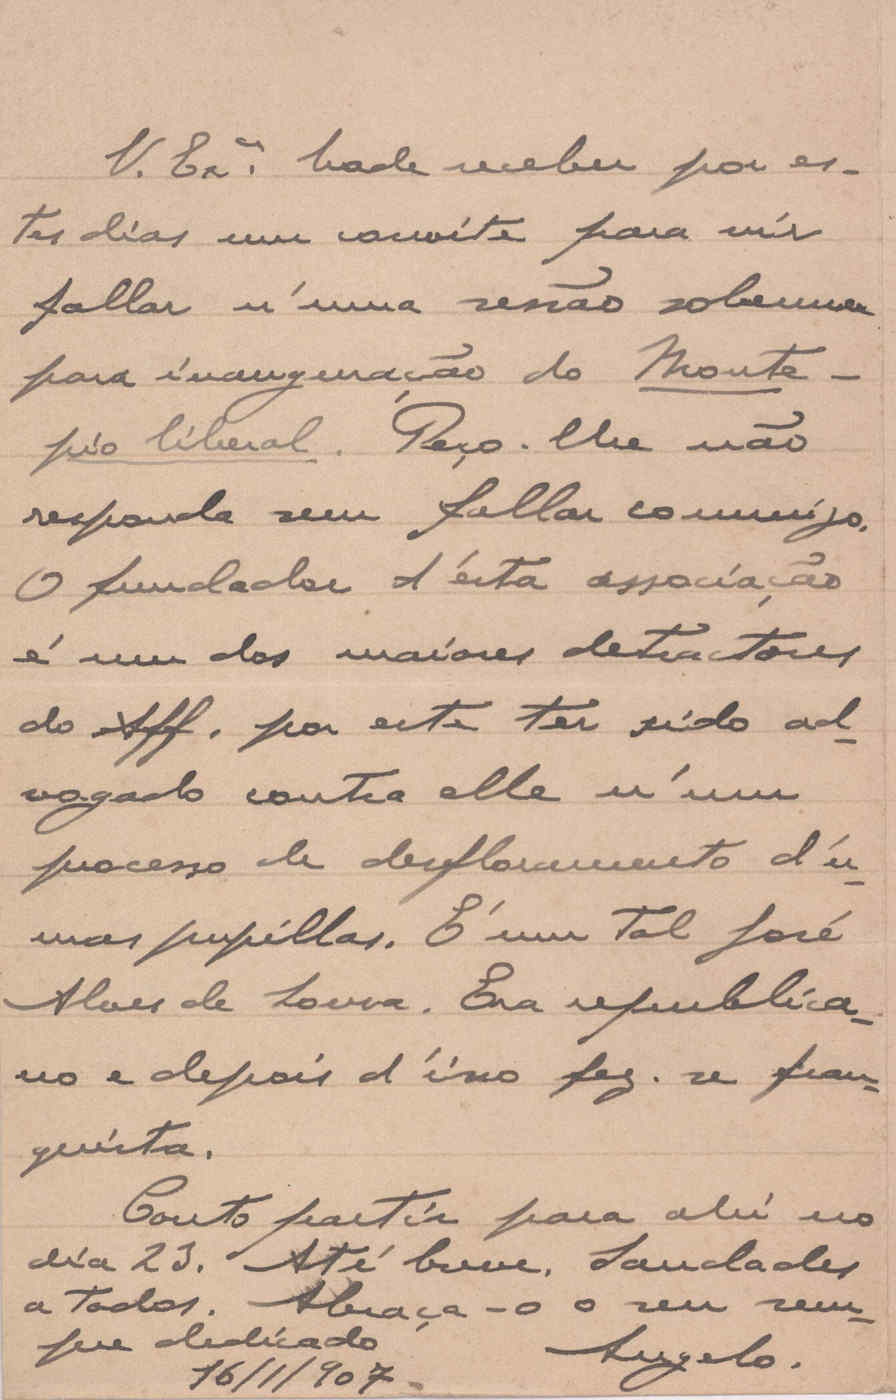 V. Exª. hade receber por es-
tes dias um convite para vir
fallar n'uma sessão solemne
para inauguração do Monte-
pio liberal. Peço-lhe não
responda sem fallar commigo.
O fundador d'esta associação
é um dos maiores detractores
do Aff. por este ter sido ad-
vogado contra elle n'um
processo de desfloramento d'u-
mas pupillas. É um tal José
Alves de Sousa. Era republica-
no e depois d'isso fez-se fran-
quista.
Conto partir para ahi no
dia 23. Até breve. Saudades
a todos. Abraça-o o seu sem-
pre dedicado
Angelo.
16/1/907.